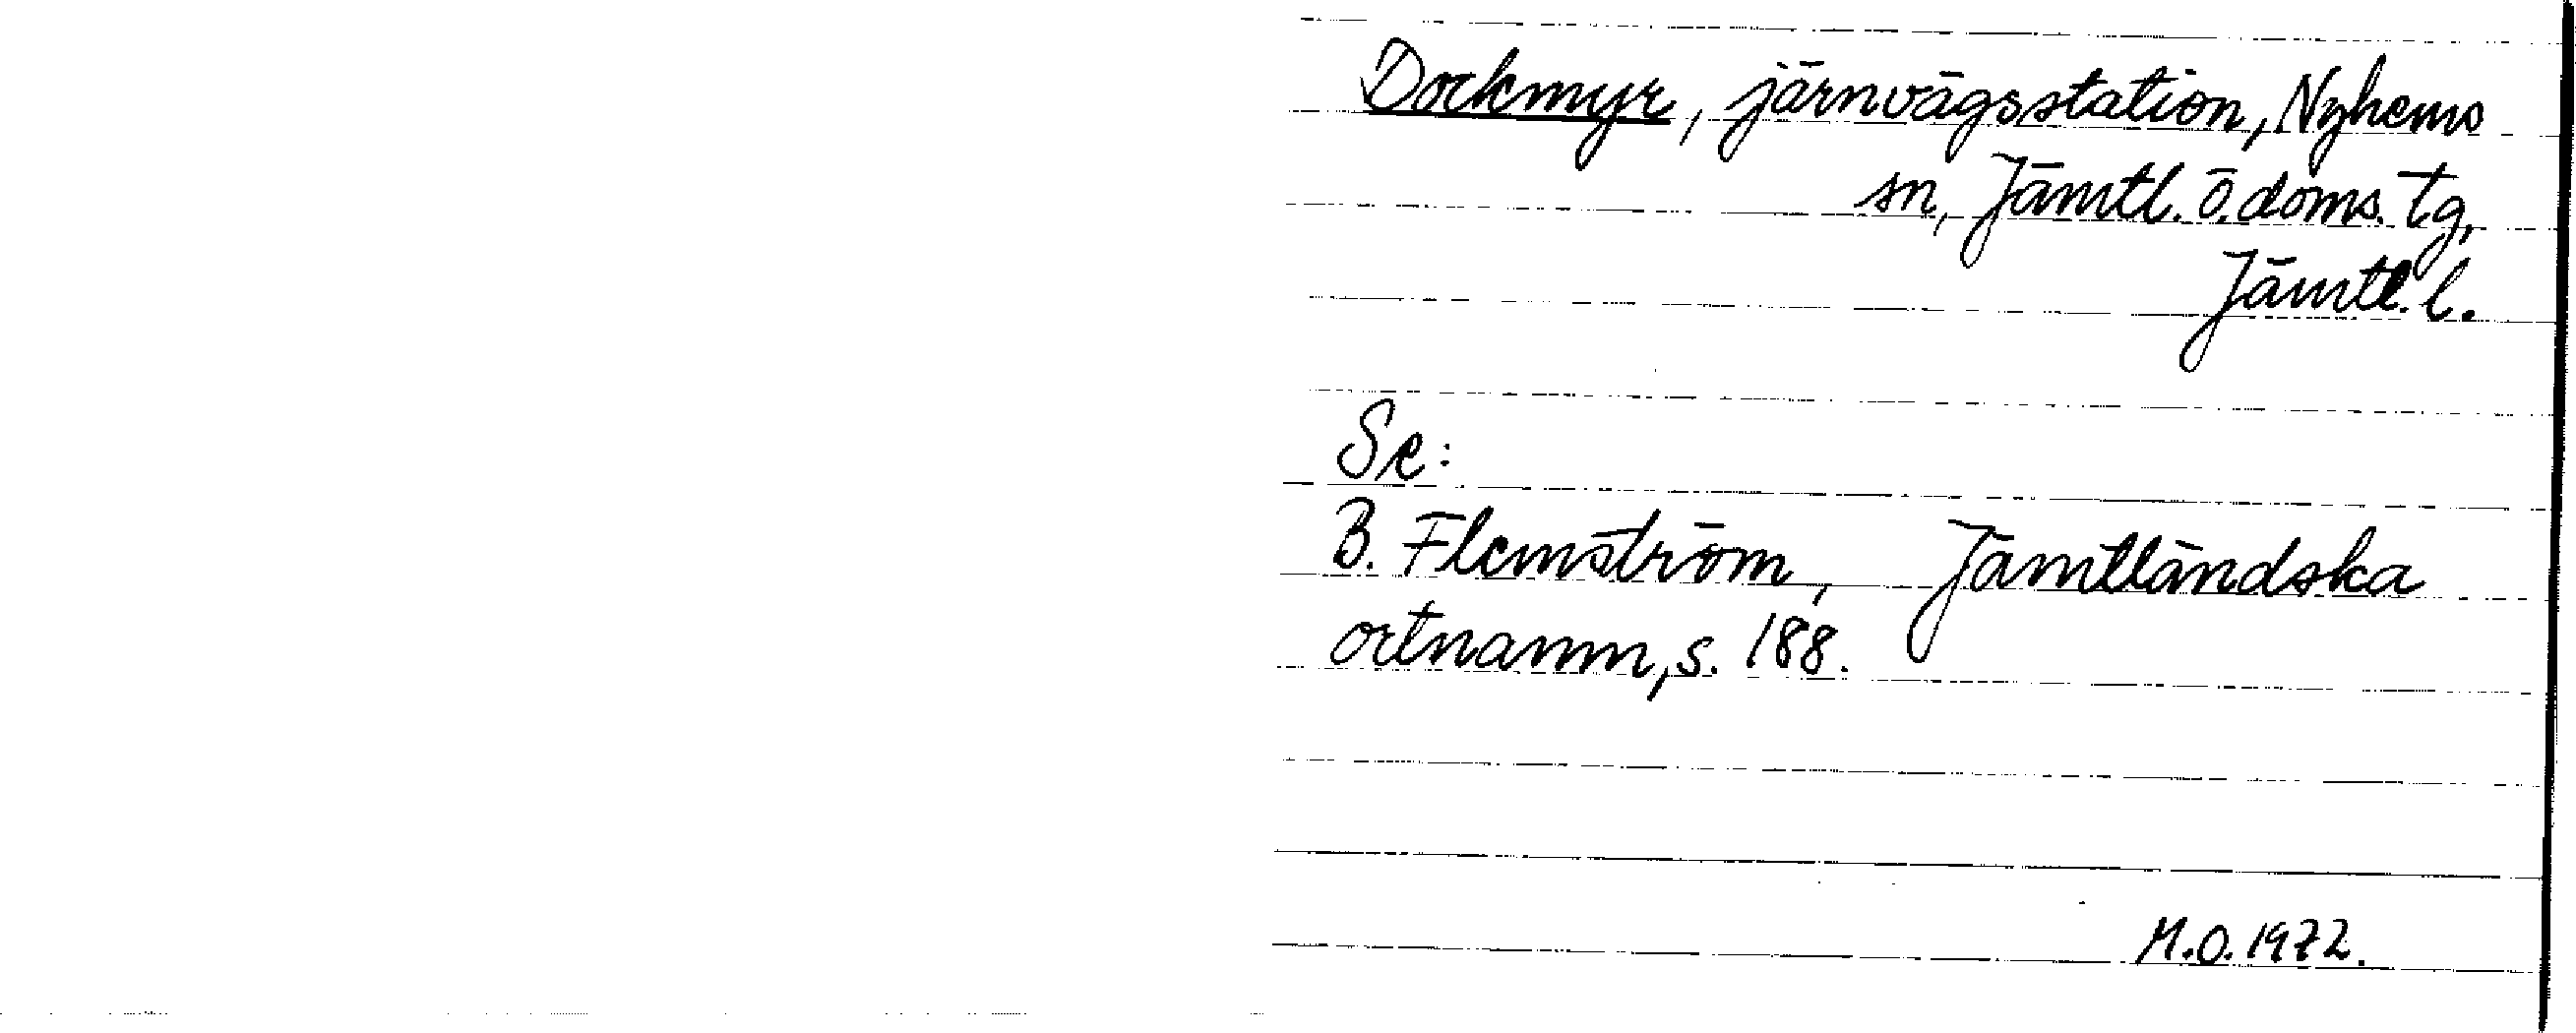 Dockmyr, järnvägsstation, Nyhems
sn, Jämtl. ö. doms. tg,
Jämtl. l.
Se:
B. Flemström, Jämtländska
ortnamn, s. 188.
M.O. 1972.